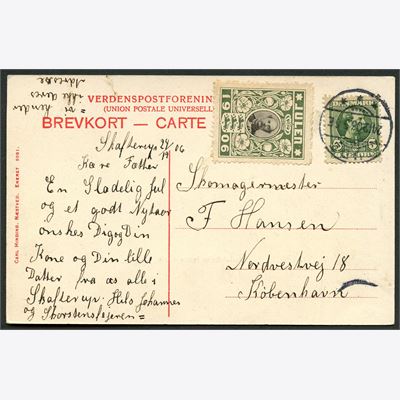 vi kender
ikke deres
Adresse
VERDENSPOSTFORENIN
(UNION POSTALE UNIVERSELL
BREVKORT — CARTE
JULEN
1906
DANMARK
5
Skafterup 22/12 06
Kære Fætter
En Glædelig Jul
og et godt Nytaar
ønskes Dig og Din
Kone og Din lille
Datter fra os alle i
Skafterup. Hils Johannes
og
Skomagermester
F Hansen
Nordvestvej 18
København
CARL MINDING. NÆSTVED. ENERET 5081.